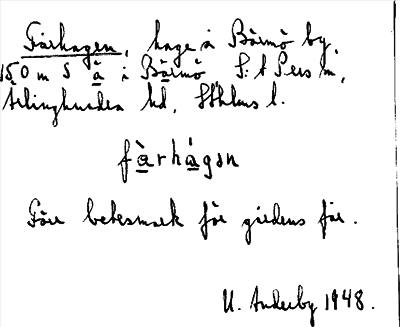 Fårhagen, hage å Bärmö by,
150 m S å i Bärmö, S:t Pers sn,
Ärlinghundra hd, Sthlms l.
fà̱rhá̱gən
Förr betesmark för gårdens får.
U. Anderby 1948.